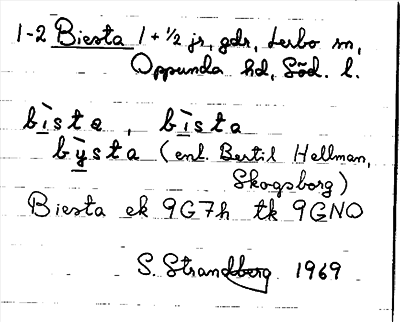 1-2 Biesta 1 + ½ jr, gdr, Lerbo sn,
Oppunda hd, Söd. l.
bì̱sta, bì̱sta
bỳ̱sta (enl. Bertil Hellman,
Skogsborg)
Biesta ek 9G7h tk 9GNO
S. Strandberg 1969